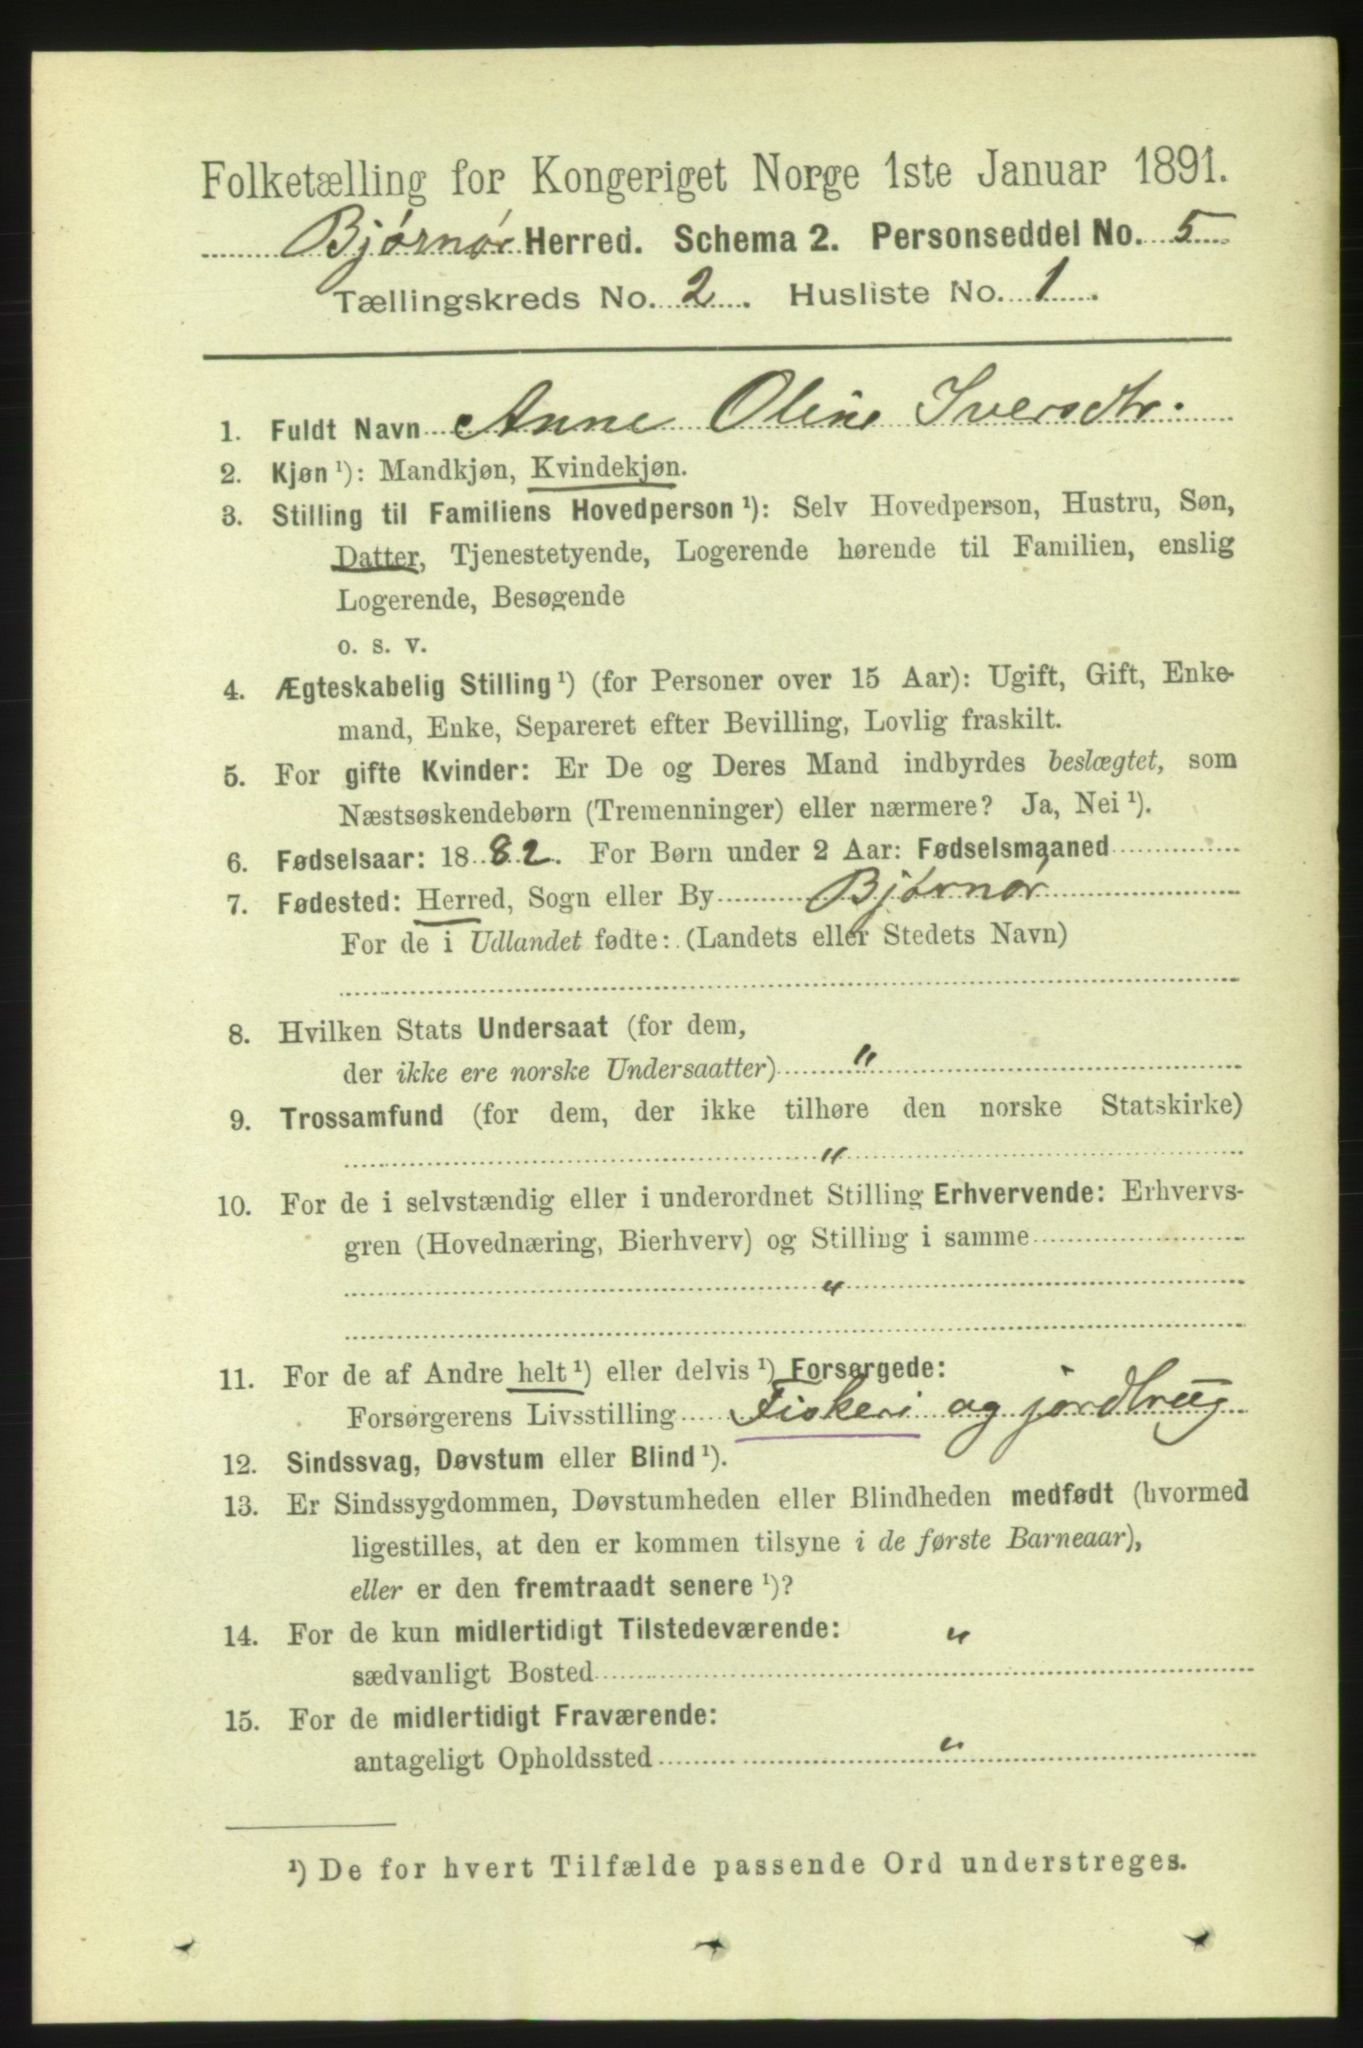 Folketælling for Kongeriget Norge 1ste Januar 1891.
Bjørnør Herred. Schema 2. Personseddel No. 5
Tællingskreds No. 2. Husliste No. 1.
1. Fuldt Navn Anne Oline Iversdtr.
2. Kjøn ¹): Mandkjøn, Kvindekjøn.
3. Stilling til Familiens Hovedperson ¹): Selv Hovedperson, Hustru, Søn,
Datter, Tjenestetyende, Logerende hørende til Familien, enslig
Logerende, Besøgende
o. s. v.
4. Ægteskabelig Stilling ¹) (for Personer over 15 Aar): Ugift, Gift, Enke-
mand, Enke, Separeret efter Bevilling, Lovlig fraskilt.
5. For gifte Kvinder: Er De og Deres Mand indbyrdes beslægtet, som
Næstsøskendebørn (Tremenninger) eller nærmere? Ja, Nei ¹).
6. Fødselsaar: 1882. For Børn under 2 Aar: Fødselsmaaned
7. Fødested: Herred, Sogn eller By Bjørnør
For de i Udlandet fødte: (Landets eller Stedets Navn)
8. Hvilken Stats Undersaat (for dem,
der ikke ere norske Undersaatter) "
9. Trossamfund (for dem, der ikke tilhøre den norske Statskirke)
"
10. For de i selvstændig eller i underordnet Stilling Erhvervende: Erhvervs-
gren (Hovednæring, Bierhverv) og Stilling i samme
"
11. For de af Andre helt ¹) eller delvis ¹) Forsørgede:
Forsørgerens Livsstilling Fiskeri og jordbrug
12. Sindssvag, Døvstum eller Blind ¹).
13. Er Sindssygdommen, Døvstumheden eller Blindheden medfødt (hvormed
ligestilles, at den er kommen tilsyne i de første Barneaar),
eller er den fremtraadt senere ¹)?
14. For de kun midlertidigt Tilstedeværende: "
sædvanligt Bosted
15. For de midlertidigt Fraværende:
antageligt Opholdssted "
¹) De for hvert Tilfælde passende Ord understreges.